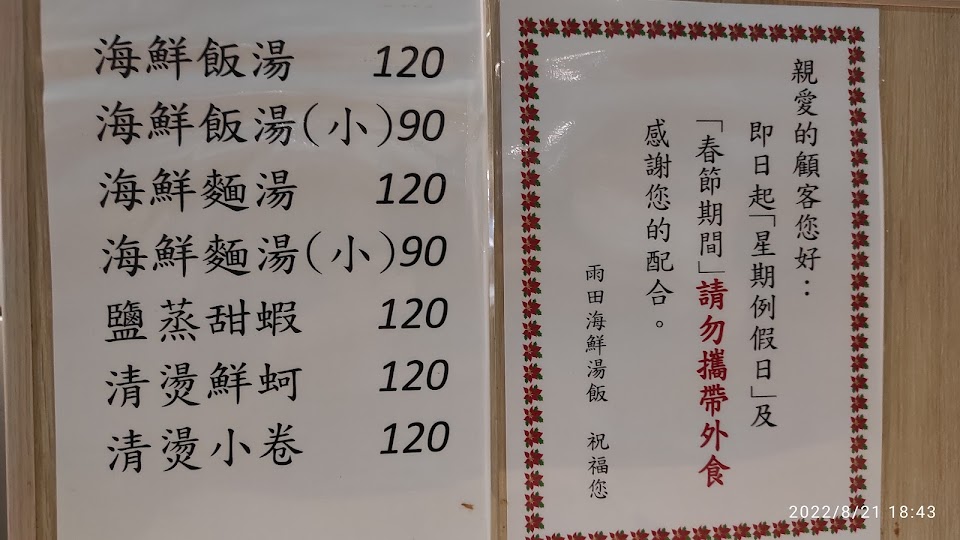 海鮮飯湯 120
海鮮飯湯(小)90
海鮮麵湯 120
海鮮麵湯(小)90
鹽蒸甜蝦 120
清燙鮮蚵 120
清燙小卷 120
親愛的顧客您好：
即日起「星期例假日」及
「春節期間」請勿攜帶外食
感謝您的配合。
雨田海鮮湯飯 祝福您
2022/8/21 18:43